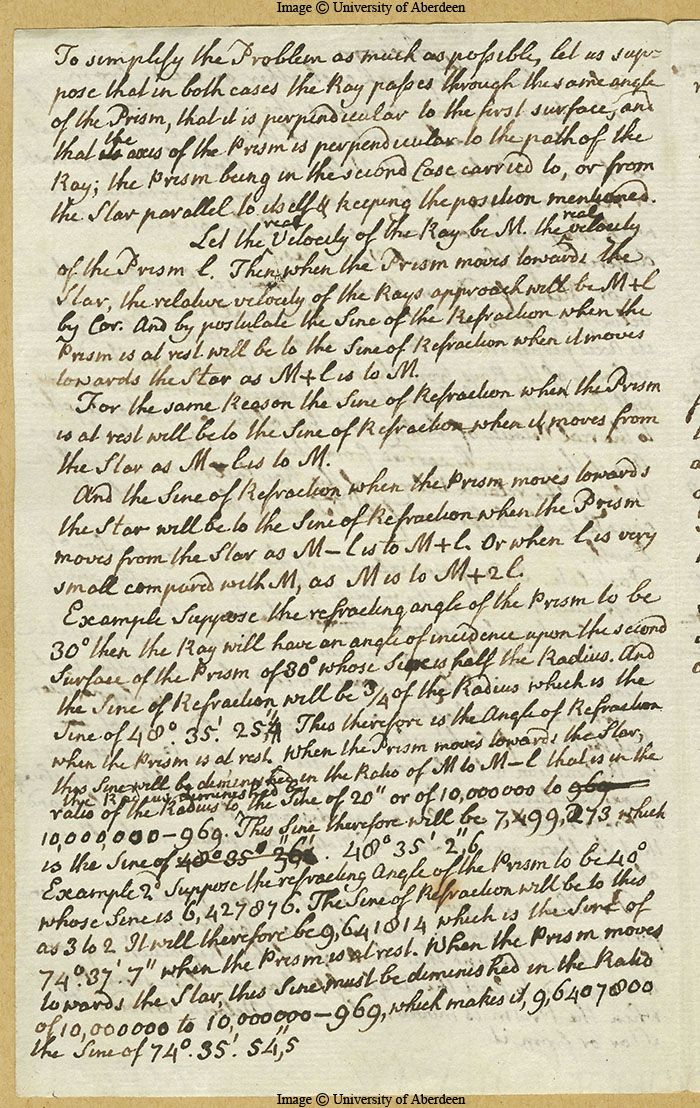 Image © University of Aberdeen
To simplify the Problem as much as possible, let us sup-
pose that in both cases the Ray passes through the same angle
of the Prism, that it is perpendicular to the first surface, and
that the axis of the Prism is perpendicular to the path of the
Ray; the Prism being in the second Case carried to, or from
the Star parallel to itself & keeping the position mentioned.
Let the real Velocity of the Ray be M. the real velocity
of the Prism l. Then when the Prism moves towards the
Star, the relative velocity of the Rays approach will be M+l
by Cor. And by postulate the Sine of the Refraction when the
Prism is at rest will be to the Sine of Refraction when it moves
towards the Star as M+l is to M.
For the same Reason the Sine of Refraction when the Prism
is at rest will be to the Sine of Refraction when it moves from
the Star as M-l is to M.
And the Sine of Refraction when the Prism moves towards
the Star will be to the Sine of Refraction when the Prism
moves from the Star as M-l is to M+l. Or when l is very
small compared with M, as M is to M+2l.
Example Suppose the refracting angle of the Prism to be
30° then the Ray will have an angle of incidence upon the second
Surface of the Prism of 30° whose Sine is half the Radius. And
the Sine of Refraction will be 3/4 of the Radius which is the
Sine of 48°. 35'. 25" This therefore is the Angle of Refraction
when the Prism is at rest. When the Prism moves towards the Star,
this Sine will be diminished in the Ratio of M to M-l that is in the
ratio of the Radius to the Radius diminished by the Sine of 20" or of 10,000000 to 969
10,000,000-969. This Sine therefore will be 7,499,273 which
is the Sine of 48° 35' 2",6
Example 2d Suppose the refracting Angle of the Prism to be 40°
whose Sine is 6,427876. The Sine of Refraction will be to this
as 3 to 2 It will therefore be 9,641814 which is the Sine of
74°. 37'. 7" when the Prism is at rest. When the Prism moves
towards the Star, this Sine must be diminished in the Ratio
of 10,000000 to 10,000000-969, which makes it, 9,6407800
the Sine of 74°. 35'. 54",5
Image © University of Aberdeen